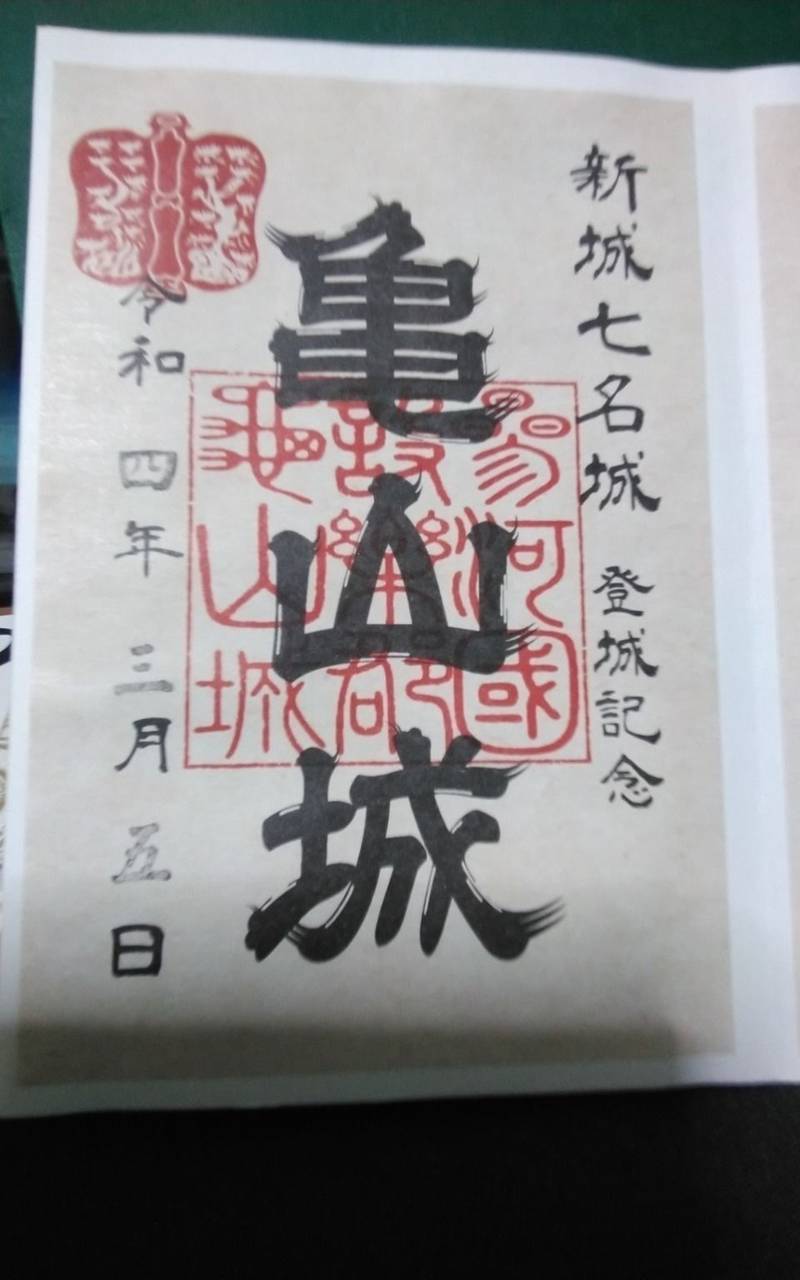 新城七名城 登城記念
亀山城
參河國
設樂郡
龜山城
令和 四年 三月 五日